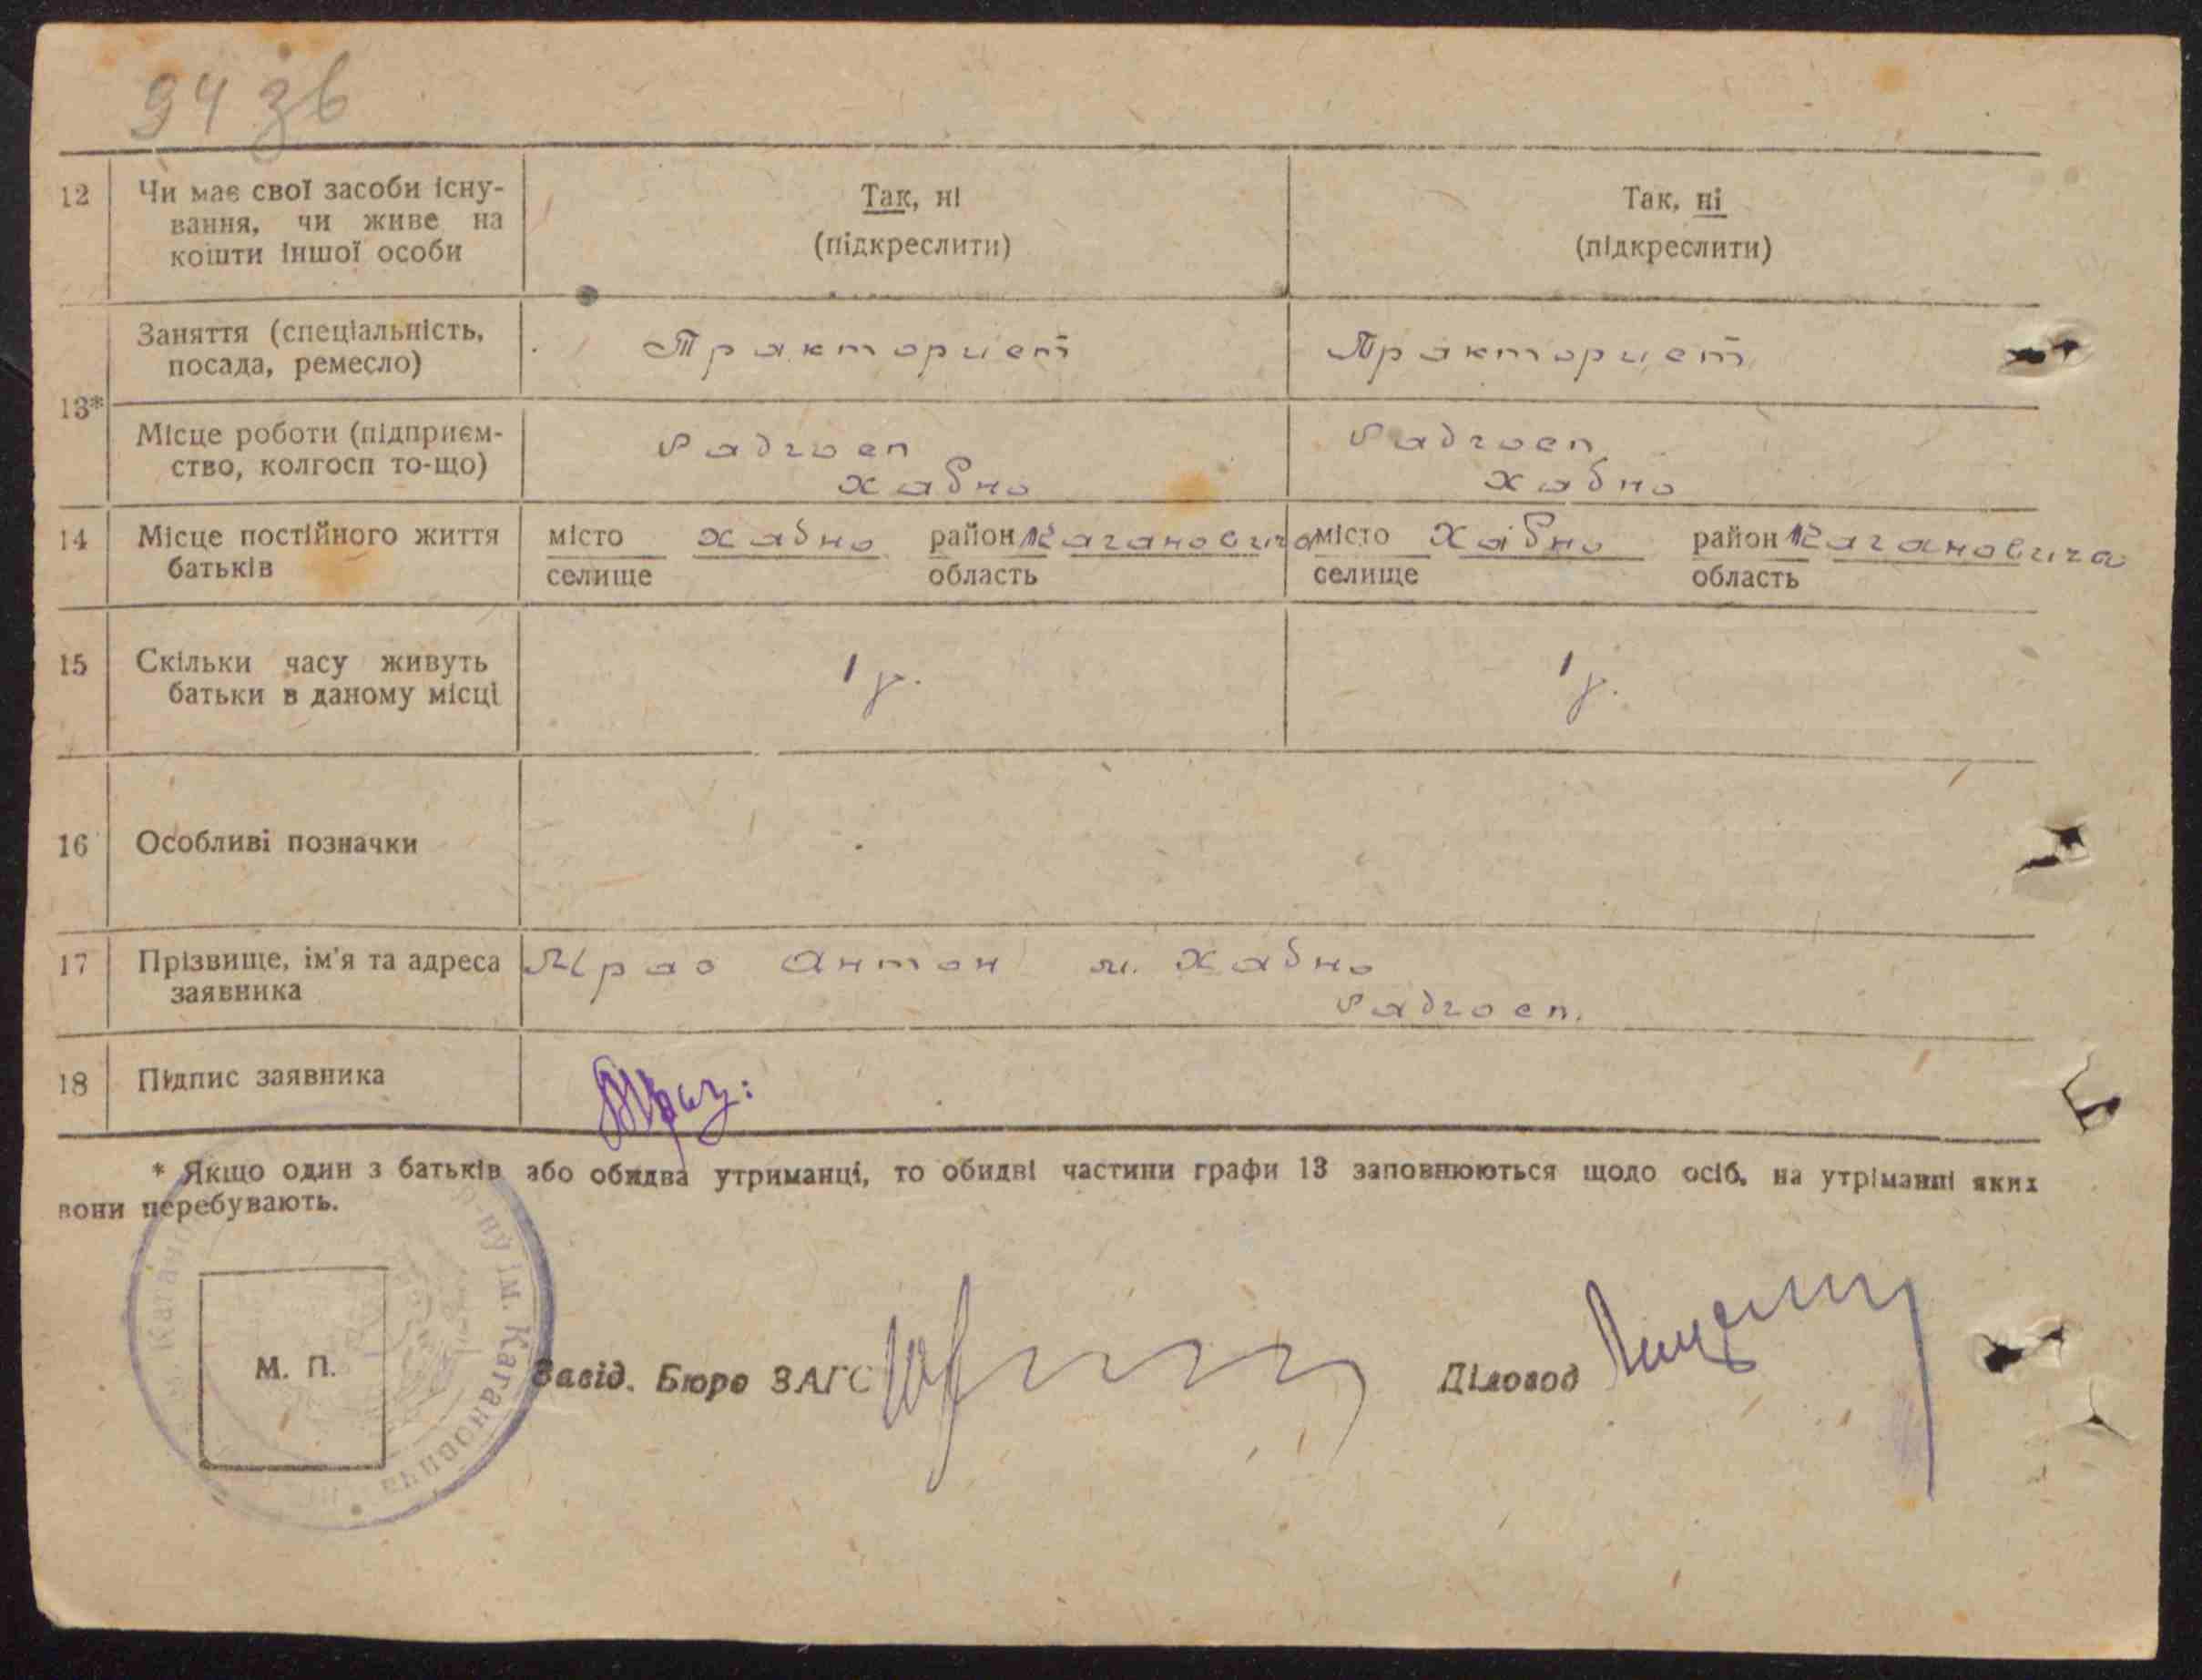 94 зв
12 Чи має свої засоби існу- Так, ні Так, ні
вання, чи живе на (підкреслити) (підкреслити)
кошти іншої особи
13* Заняття (спеціальність, Тракторист Тракторист
посада, ремесло)
Місце роботи (підприєм- Радгосп Радгосп
ство, колгосп то-що) Хабно Хабно
14 Місце постійного життя місто Хабно район Кагановича місто Хабно район Кагановича
батьків селище область селище область
15 Скільки часу живуть 1 р. 1 р.
батьки в даному місці
16 Особливі позначки
17 Прізвище, ім'я та адреса Антон м. Хабно
заявника Радгосп.
18 Підпис заявника
* Якщо один з батьків або обидва утриманці, то обидві частини графи 13 заповнюються щодо осіб, на утріманні яких
вони перебувають.
р-ну ім. Кагановича
М. П. Завід. Бюро ЗАГС Діловод